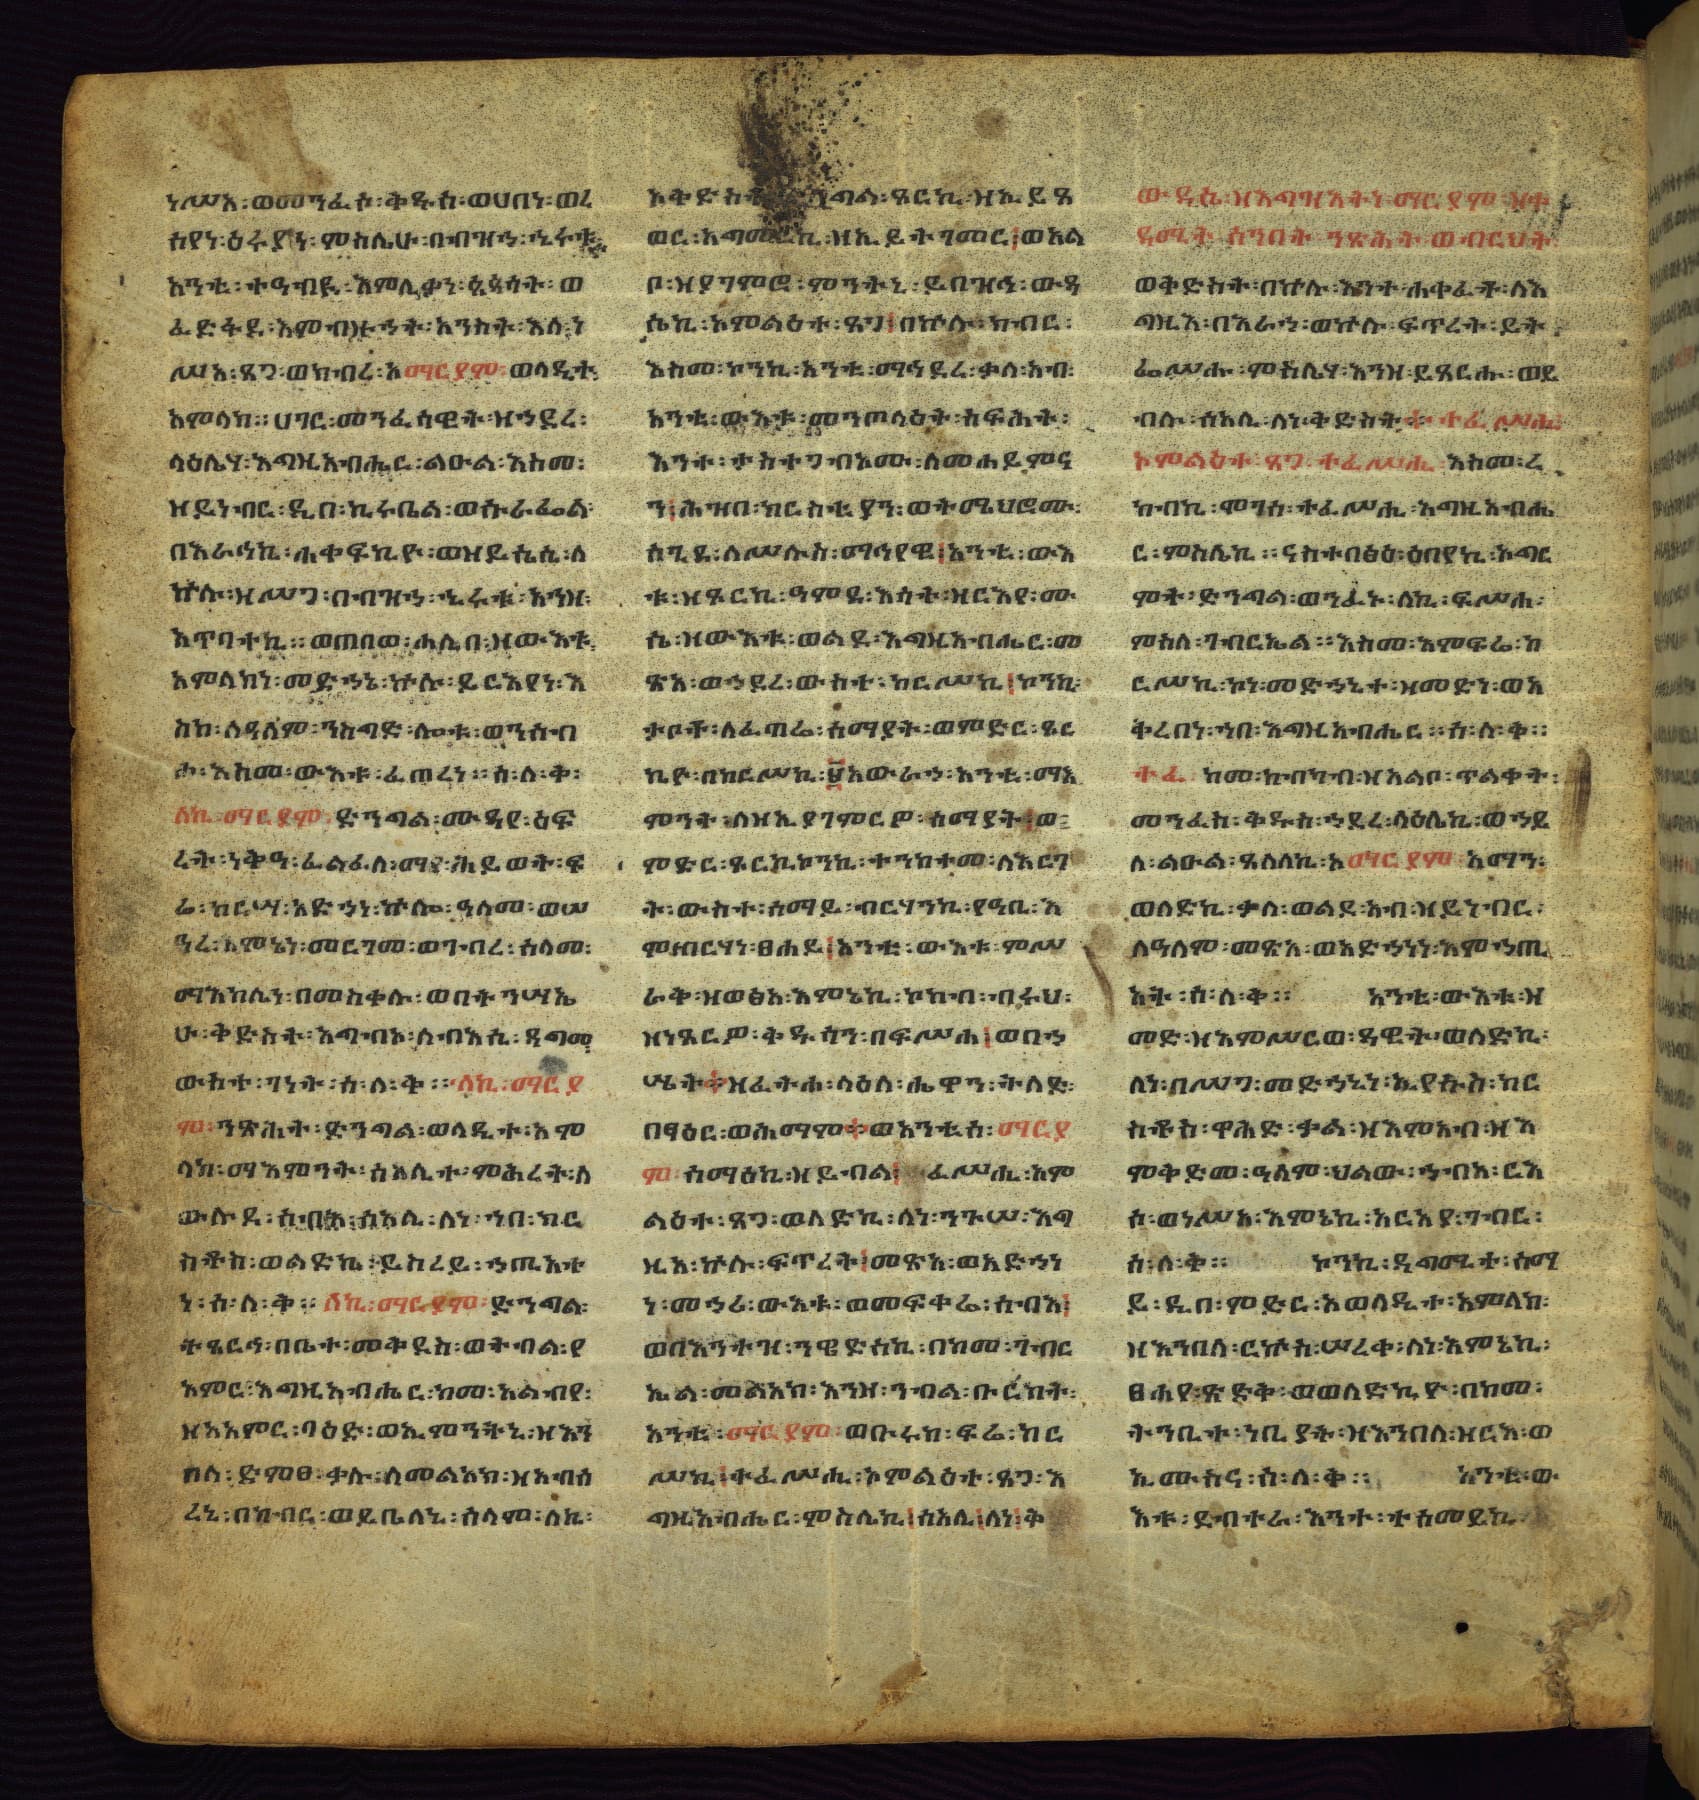 ነሥአ፡ወመንፈስ፡ቅዱስ፡ወሀበነ፡ወረ
ሰየነ፡ዕሩያነ፡ምስሌሁ፡በብዝኀ፡ኂሩቱ
አንቲ፡ተዓብዪ፡እምሊቃነ፡ዕፀዓት፡ወ
ፈድፋደ፡እምብዙኃት፡አንስት፡እለ፡ነ
ሥአ፡ጸጋ፡ወክብረ፡አማርያም፡ወላዲተ
አምላክ፡፡ሀገር፡መንፈሳዊት፡ዘኀደረ፡
ላዕሌሃ፡እግዚአብሔር፡ልዑል፡እስመ፡
ዘይነብር፡ዲበ፡ኪሩቤል፡ወሱራፌል፡
በእራኅኪ፡ሐቀፍኪዮ፡ወዘይሴሲ፡ለ
ኵሉ፡ዘሥጋ፡በብዝኀ፡ኂሩቱ፡አንዘ፡
አጥባተኪ፡፡ወጠበወ፡ሐሊበ፡ዘውእቱ
አምላክነ፡መድኅኔ፡ኵሉ፡ይርእየነ፡እ
ስከ፡ለዓለም፡ንስግድ፡ሎቱ፡ወንሰብ
ሖ፡እስመ፡ውእቱ፡ፈጠረነ፡፡ሰ፡ለ፡ቅ፡
ለኪ፡ማርያም፡ድንግል፡ሙዳየ፡ዕፍ
ረት፡ነቅዓ፡ፈልፈለ፡ማየ፡ሕይወት፡ፍ
ሬ፡ከርሣ፡አድኀነ፡ኵሎ፡ዓለመ፡ወሠ
ዓረ፡እምኔነ፡መርገመ፡ወገብረ፡ሰላመ፡
ማእከሌነ፡በመስቀሉ፡ወበትንሣኤ
ሁ፡ቅድስት፡አግብኦ፡ለብእሲ፡ዳግመ
ውስተ፡ገነት፡ሰ፡ለ፡ቅ፡፡ለኪ፡ማርያ
ም፡ንጽሕት፡ድንግል፡ወላዲተ፡አም
ላክ፡ማእምንት፡ሰአሊተ፡ምሕረት፡ለ
ውሉደ፡ሰብእ፡ሰአሊ፡ለነ፡ኀበ፡ክር
ስቶስ፡ወልድኪ፡ይስረይ፡ኀጢአተ
ነ፡ሰ፡ለ፡ቅ፡፡ለኪ፡ማርያም፡ድንግል፡
ትጼርኅ፡በቤተ፡መቅደስ፡ወትብል፡የ
አምር፡እግዚአብሔር፡ከመ፡አልብየ፡
ዘአአምር፡ባዕድ፡ወኢምንትኒ፡ዘእን
በለ፡ድምፀ፡ቃሉ፡ለመልአክ፡ዘአብሰ
ረኒ፡በክብር፡ወይቤለኒ፡ሰላም፡ለኪ፡
ጾርኪ፡ዘኢይጸ
ወር፡አግመርኪ፡ዘኢይትገመር፡ወአል
ቦ፡ዘያገምሮ፡ምንትኒ፡ይበዝኅ፡ውዳ
ሴኪ፡ኦምልዕተ፡ጸጋ፡በኵሉ፡ክብር፡
እስመ፡ኮንኪ፡አንቲ፡ማኅደረ፡ቃለ፡አብ፡
አንቲ፡ውእቱ፡መንጦላዕት፡ስፍሕት፡
እንተ፡ታስተጋብኦሙ፡ለመሐይምና
ን፡ሕዝበ፡ክርስቲያን፡ወትሜህሮሙ፡
ሰጊደ፡ለሥሉስ፡ማኅየዊ፡አንቲ፡ውእ
ቱ፡ዘጾርኪ፡ዓምደ፡እሳት፡ዘርእየ፡ሙ
ሴ፡ዘውእቱ፡ወልደ፡እግዚአብሔር፡መ
ጽአ፡ወኀደረ፡ውስተ፡ከርሥኪ፡ኮንኪ፡
ታቦተ፡ለፈጣሬ፡ሰማያት፡ወምድር፡ጾር
ኪዮ፡በከርሥኪ፡፱አውራኀ፡አንቲ፡ማእ
ምንት፡ለዘኢያገምርዎ፡ሰማያት፡ወ
ምድር፡ጾርኪ፡ኮንኪ፡ተንከተመ፡ለእርገ
ት፡ውስተ፡ሰማይ፡ብርሃንኪ፡የዓቢ፡እ
ምብርሃነ፡ፀሐይ፡አንቲ፡ውእቱ፡ምሥ
ራቅ፡ዘወፅአ፡እምኔኪ፡ኮከብ፡ብሩህ፡
ዘነጸርዎ፡ቅዱሳን፡በፍሥሐ፡ወበኀ
ሤት፡ዘፈትሐ፡ላዕለ፡ሔዋን፡ትለድ፡
በፃዕር፡ወሕማም፡ወአንቲሰ፡ማርያ
ም፡ሰማዕኪ፡ዘይብል፡ተፈሥሒ፡ኦም
ልዕተ፡ጸጋ፡ወለድኪ፡ለነ፡ንጉሠ፡እግ
ዚአ፡ኵሉ፡ፍጥረት፡መጽአ፡ወአድኀነ
ነ፡መኀሪ፡ውእቱ፡ወመፍቀሬ፡ሰብእ፡
ወበእንተዝ፡ንዌድሰኪ፡በከመ፡ገብር
ኤል፡መልአክ፡እንዘ፡ንብል፡ቡርክት፡
አንቲ፡ማርያም፡ወቡሩክ፡ፍሬ፡ከር
ሥኪ፡ተፈሥሒ፡ኦምልዕተ፡ጸጋ፡እ
ግዚአብሔር፡ምስሌኪ፡ሰአሊ፡ለነ፡ቅ
ውዳሴ፡ዘእግዝእትነ፡ማርያም፡ዘቀ
ዳሚት፡ሰንበት፡ንጽሕት፡ወብርህት
ወቅድስት፡በኵሉ፡እንተ፡ሐቀፈቶ፡ለእ
ግዚእ፡በእራኀ፡ወኵሉ፡ፍጥረት፡ይት
ፌሥሑ፡ምስሌሃ፡እንዘ፡ይጸርሑ፡ወይ
ብሉ፡ሰአሊ፡ለነ፡ቅድስት፡ተፈሥሒ፡
ኦምልዕተ፡ጸጋ፡ተፈሥሒ፡እስመ፡ረ
ከብኪ፡ሞገሰ፡ተፈሥሒ፡እግዚአብሔ
ር፡ምስሌኪ፡፡ናስተበፅዕ፡ዕበየኪ፡እግር
ምት፡ድንግል፡ወንፌኑ፡ለኪ፡ፍሥሐ፡
ምስለ፡ገብርኤል፡፡እስመ፡እምፍሬ፡ከ
ርሥኪ፡ኮነ፡መድኀኒተ፡ዘመድነ፡ወአ
ቅረበነ፡ኀበ፡እግዚአብሔር፡፡ሰ፡ለ፡ቅ፡፡
ተፈ፡ከመ፡ከብካብ፡ዘአልቦ፡ጥልቀት፡
መንፈስ፡ቅዱስ፡ኀደረ፡ላዕሌኪ፡ወኀይ
ለ፡ልዑል፡ጸለለኪ፡አማርያም፡አማን፡
ወለድኪ፡ቃለ፡ወልደ፡አብ፡ዘይነብር፡
ለዓለም፡መጽአ፡ወአድኀነነ፡እምኀጢ
አት፡ሰ፡ለ፡ቅ፡፡ አንቲ፡ውእቱ፡ዘ
መድ፡ዘእምሥርወ፡ዳዊት፡ወለድኪ፡
ለነ፡በሥጋ፡መድኀኒነ፡ኢየሱስ፡ክር
ስቶስ፡ዋሕድ፡ቃል፡ዘእምአብ፡ዘእ
ምቅድመ፡ዓለም፡ህልው፡ኀብአ፡ርእ
ሶ፡ወነሥአ፡እምኔኪ፡አርአያ፡ገብር፡
ሰ፡ለ፡ቅ፡፡ ኮንኪ፡ዳግሚተ፡ሰማ
ይ፡ዲበ፡ምድር፡አወላዲተ፡አምላክ፡
ዘእንበለ፡ርኩስ፡ሠረቀ፡ለነ፡እምኔኪ፡
ፀሐየ፡ጽድቅ፡ወወለድኪዮ፡በከመ፡
ትንቢተ፡ነቢያት፡ዘእንበለ፡ዘርእ፡ወ
ኢሙስና፡ሰ፡ለ፡ቅ፡፡ አንቲ፡ው
እቱ፡ደብተራ፡እንተ፡ተሰመይኪ